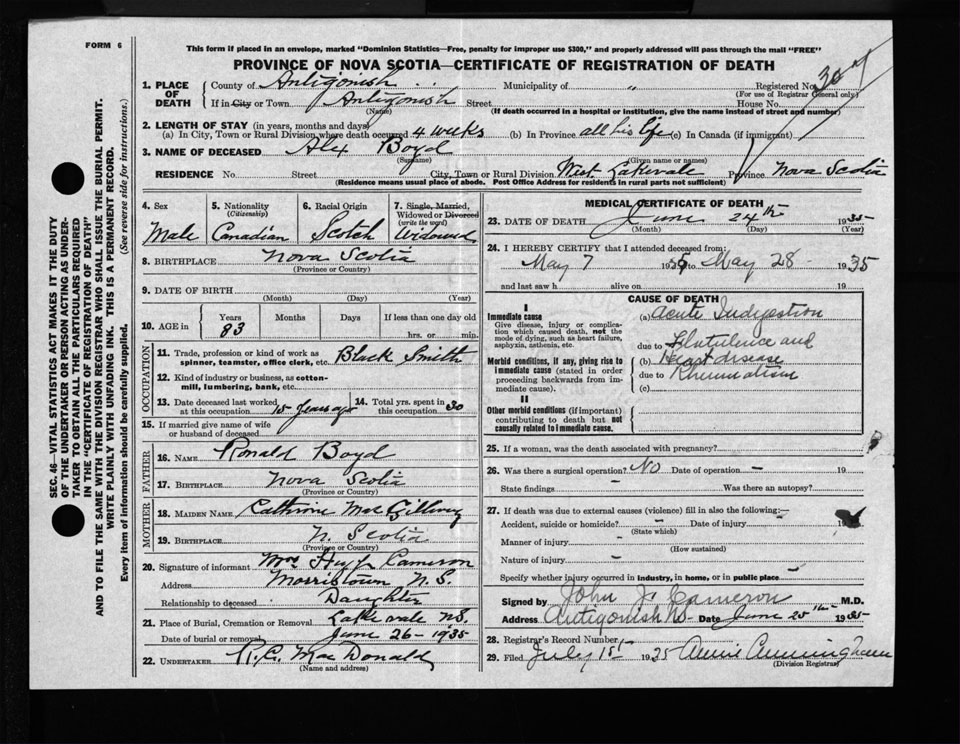 FORM 6
This form if placed in an envelope, marked "Dominion Statistics—Free, penalty for improper use $300," and properly addressed will pass through the mail "FREE"
PROVINCE OF NOVA SCOTIA—CERTIFICATE OF REGISTRATION OF DEATH
SEC. 46—VITAL STATISTICS ACT MAKES IT THE DUTY
OF THE UNDERTAKER OR PERSON ACTING AS UNDER-
TAKER TO OBTAIN ALL THE PARTICULARS REQUIRED
IN THE "CERTIFICATE OF REGISTRATION OF DEATH"
AND TO FILE THE SAME WITH THE DIVISION REGISTRAR WHO SHALL ISSUE THE BURIAL PERMIT.
WRITE PLAINLY WITH UNFADING INK. THIS IS A PERMANENT RECORD.
Every item of information should be carefully supplied. (See reverse side for instructions.)
1. PLACE OF DEATH County of Antigonish Municipality of " Registered No.
(For use of Registrar General only)
If in City or Town Antigonish Street House No.
(Name) (If death occurred in a hospital or institution, give the name instead of street and number)
2. LENGTH OF STAY (in years, months and days)
(a) In City, Town or Rural Division where death occurred 4 weeks (b) In Province all his life (c) In Canada (if immigrant)
3. NAME OF DECEASED Alex Boyd
(Surname) (Given name or names)
RESIDENCE No. Street City, Town or Rural Division West Lakevale Province Nova Scotia
(Residence means usual place of abode. Post Office Address for residents in rural parts not sufficient)
4. Sex Male
5. Nationality (Citizenship) Canadian
6. Racial Origin Scotch
7. Single, Married, Widowed or Divorced (write the word) Widowed
8. BIRTHPLACE Nova Scotia
(Province or Country)
9. DATE OF BIRTH
(Month) (Day) (Year)
10. AGE in Years Months Days If less than one day old
83 hrs. or min.
OCCUPATION
11. Trade, profession or kind of work as spinner, teamster, office clerk, etc. Black Smith
12. Kind of industry or business, as cotton-mill, lumbering, bank, etc.
13. Date deceased last worked at this occupation 15 years ago 14. Total yrs. spent in this occupation 30
15. If married give name of wife or husband of deceased
FATHER
16. NAME Ronald Boyd
17. BIRTHPLACE Nova Scotia
(Province or Country)
MOTHER
18. MAIDEN NAME Cathrine Mac Gillvray
19. BIRTHPLACE N. Scotia
(Province or Country)
20. Signature of informant Mrs Hugh Cameron
Address Morristown N.S.
Relationship to deceased Daughter
21. Place of Burial, Cremation or Removal Lakevale N.S.
Date of burial or removal June 26 - 1935
22. UNDERTAKER R.C. Mac Donald
(Name and address)
MEDICAL CERTIFICATE OF DEATH
23. DATE OF DEATH June 24th 1935
(Month) (Day) (Year)
24. I HEREBY CERTIFY that I attended deceased from:
May 7 1935 to May 28 1935
and last saw h alive on 19
CAUSE OF DEATH
I
Immediate cause
Give disease, injury or complication which caused death, not the mode of dying, such as heart failure, asphyxia, asthenia, etc.
(a) Acute Indigestion
due to Flatulence and
Morbid conditions, if any, giving rise to immediate cause (stated in order proceeding backwards from immediate cause).
(b) Heart disease
due to Rheumatism
(c)
II
Other morbid conditions (if important) contributing to death but not causally related to immediate cause.
25. If a woman, was the death associated with pregnancy?
26. Was there a surgical operation? No Date of operation – 19
State findings – Was there an autopsy?
27. If death was due to external causes (violence) fill in also the following:—
Accident, suicide or homicide? – Date of injury – 19
(State which)
Manner of injury –
(How sustained)
Nature of injury –
Specify whether injury occurred in industry, in home, or in public place –
Signed by John J. Cameron M.D.
Address Antigonish N.S. Date June 25th 1935
28. Registrar's Record Number
29. Filed July 1st 1935 Annie Cunningham
(Division Registrar)